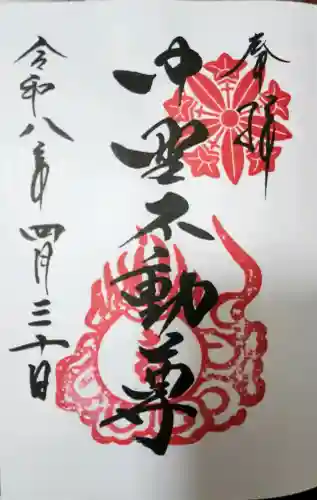 奉拝
中野不動尊
令和八年四月三十日